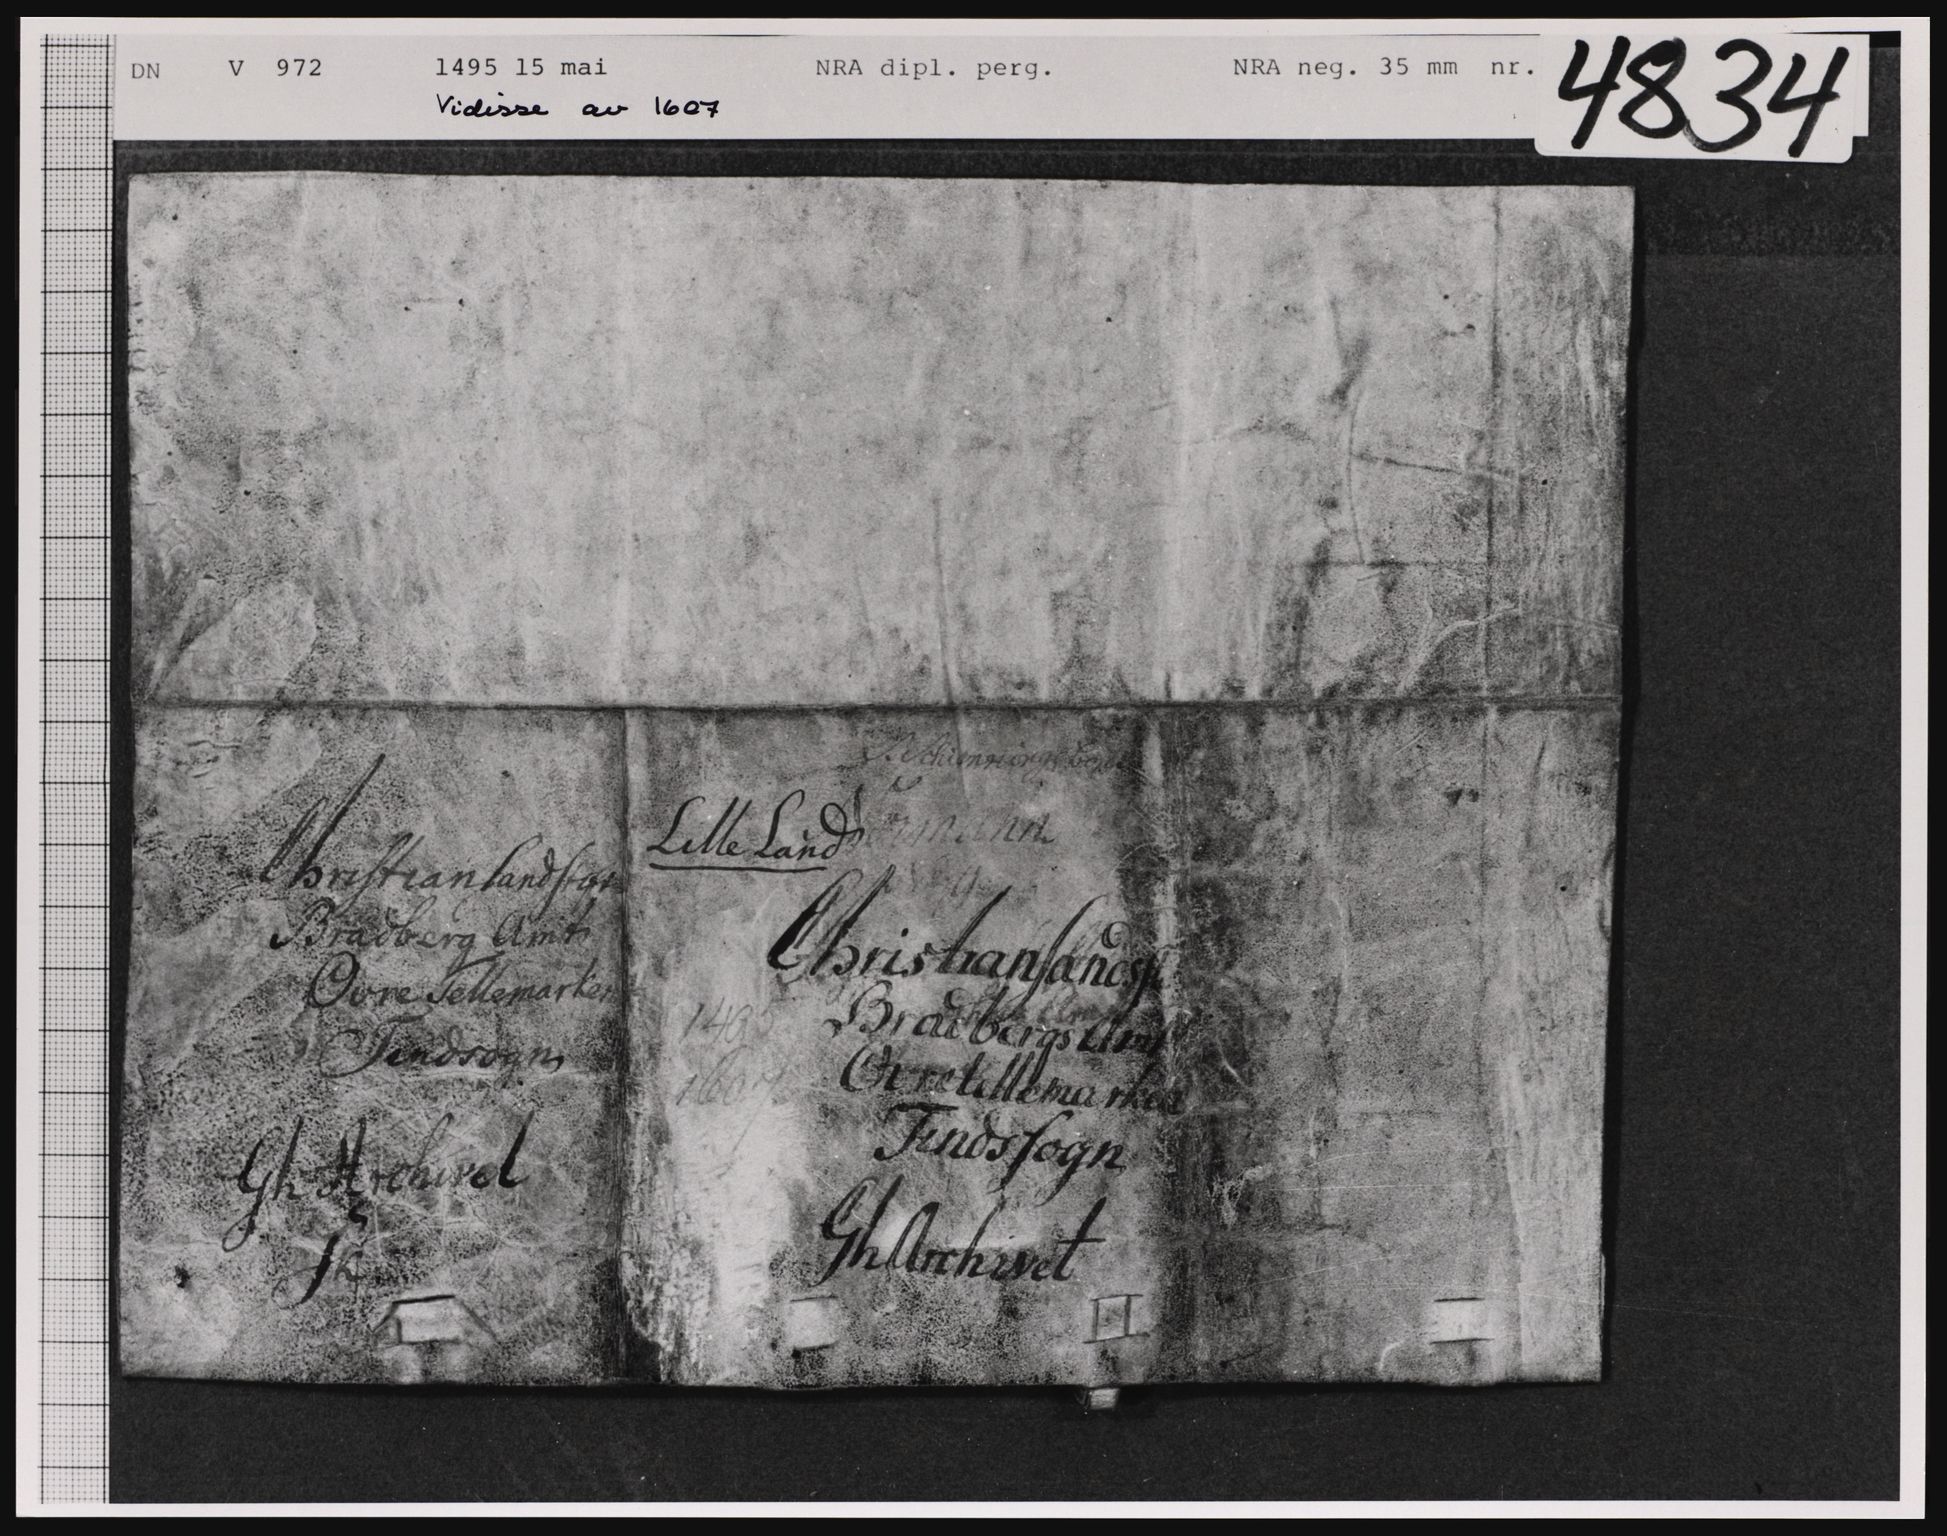 DN V 972 1495 15 mai NRA dipl. perg. NRA neg. 35 mm nr. 4834
Vidisse av 1607
Lille Land
Christiansandsstyr
Bradberg Amt
Ovre Tellemarken
Tindsogn
Gh Archivet
1495
1607
Christiansandsst
Bradbergs Amt
Ovretellemarken
Tindssogn
Gh Archivet